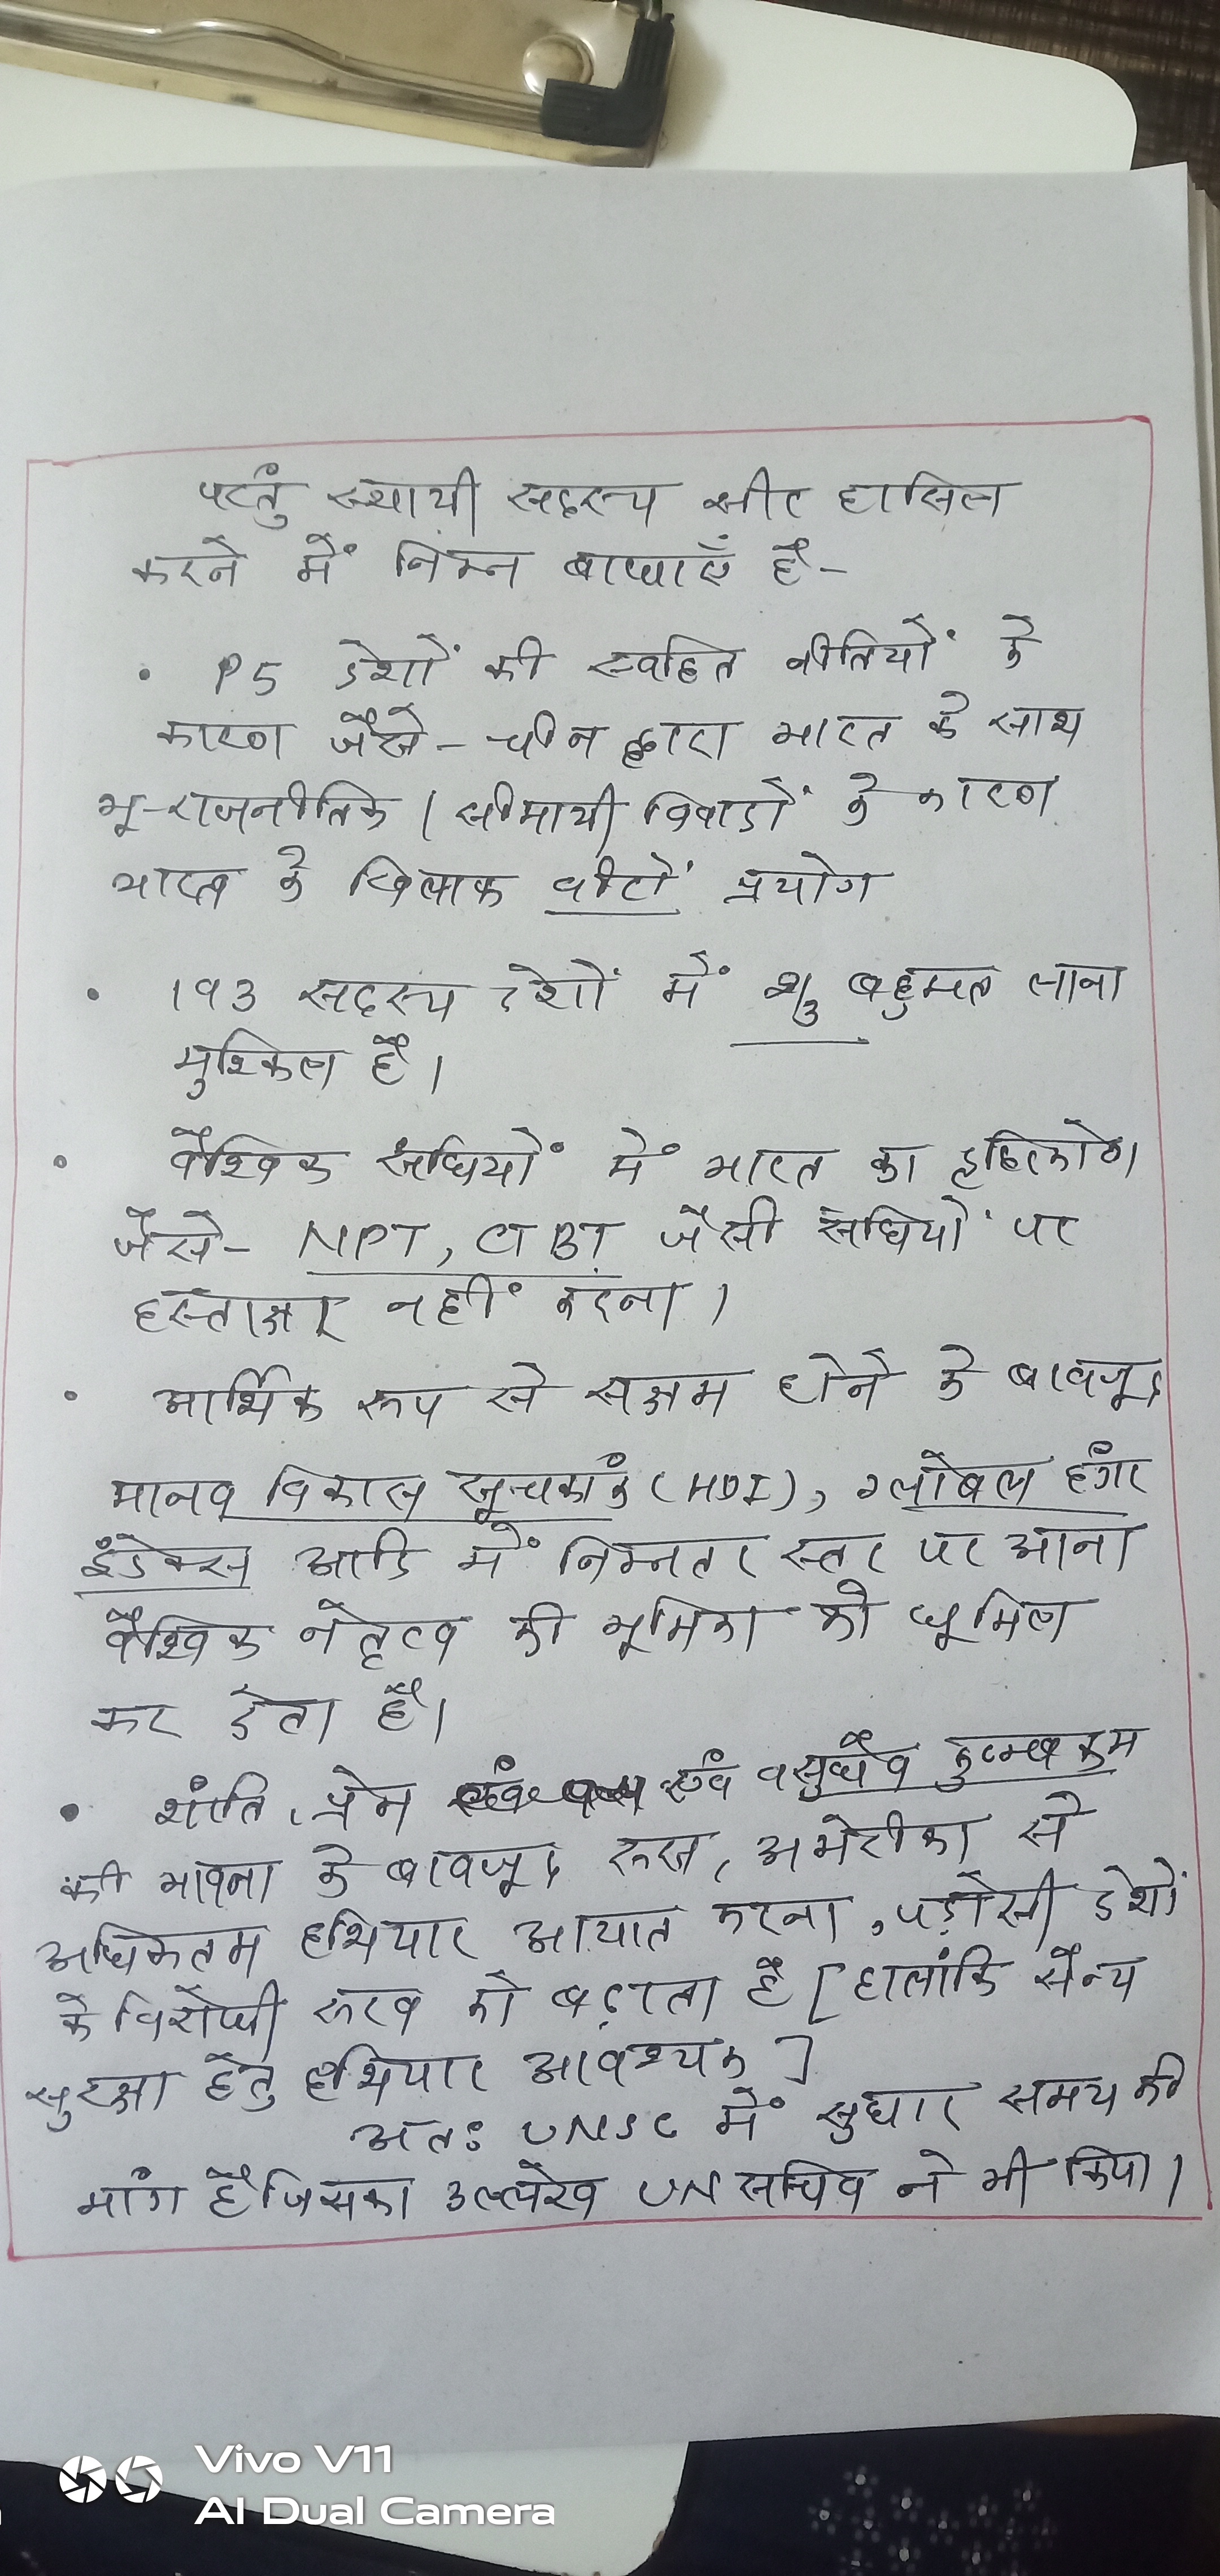 परंतु स्थायी सदस्य सीट हासिल
करने में निम्न बाधाएँ है-
• P5 देशों की स्वहित नीतियों के
कारण जैसे- चीन द्वारा भारत के साथ
भू-राजनीतिक / सीमायी विवादों के कारण
भारत के खिलाफ वीटों प्रयोग
• 193 सदस्य देशों में बहुमत लाना
मुश्किल है।
• वैश्विक संधियों में भारत का दृष्टिकोण
जैसे- NPT, CTBT जैसी संधियों पर
हस्ताक्षर नहीं करना।
• आर्थिक रूप से सक्षम होने के बावजूद
मानव विकास सूचकांक (HDI), ग्लोबल हंगर
इंडेक्स आदि में निम्नतर स्तर पर आना
वैश्विक नेतृत्व की भूमिका को धूमिल
कर देता है।
• शांति, प्रेम एवं वसुधैव कुटुम्बकम
की भावना के बावजूद रूस, अमेरीका से
अधिकतम हथियार आयात करना, पड़ोसी देशों
के विरोधी रूख को बढ़ाता है [हालांकि सैन्य
सुरक्षा हेतु हथियार आवश्यक]
अतः UNSC में सुधार समय की
मांग है जिसका उल्लेख UN सचिव ने भी किया।
Vivo V11
AI Dual Camera